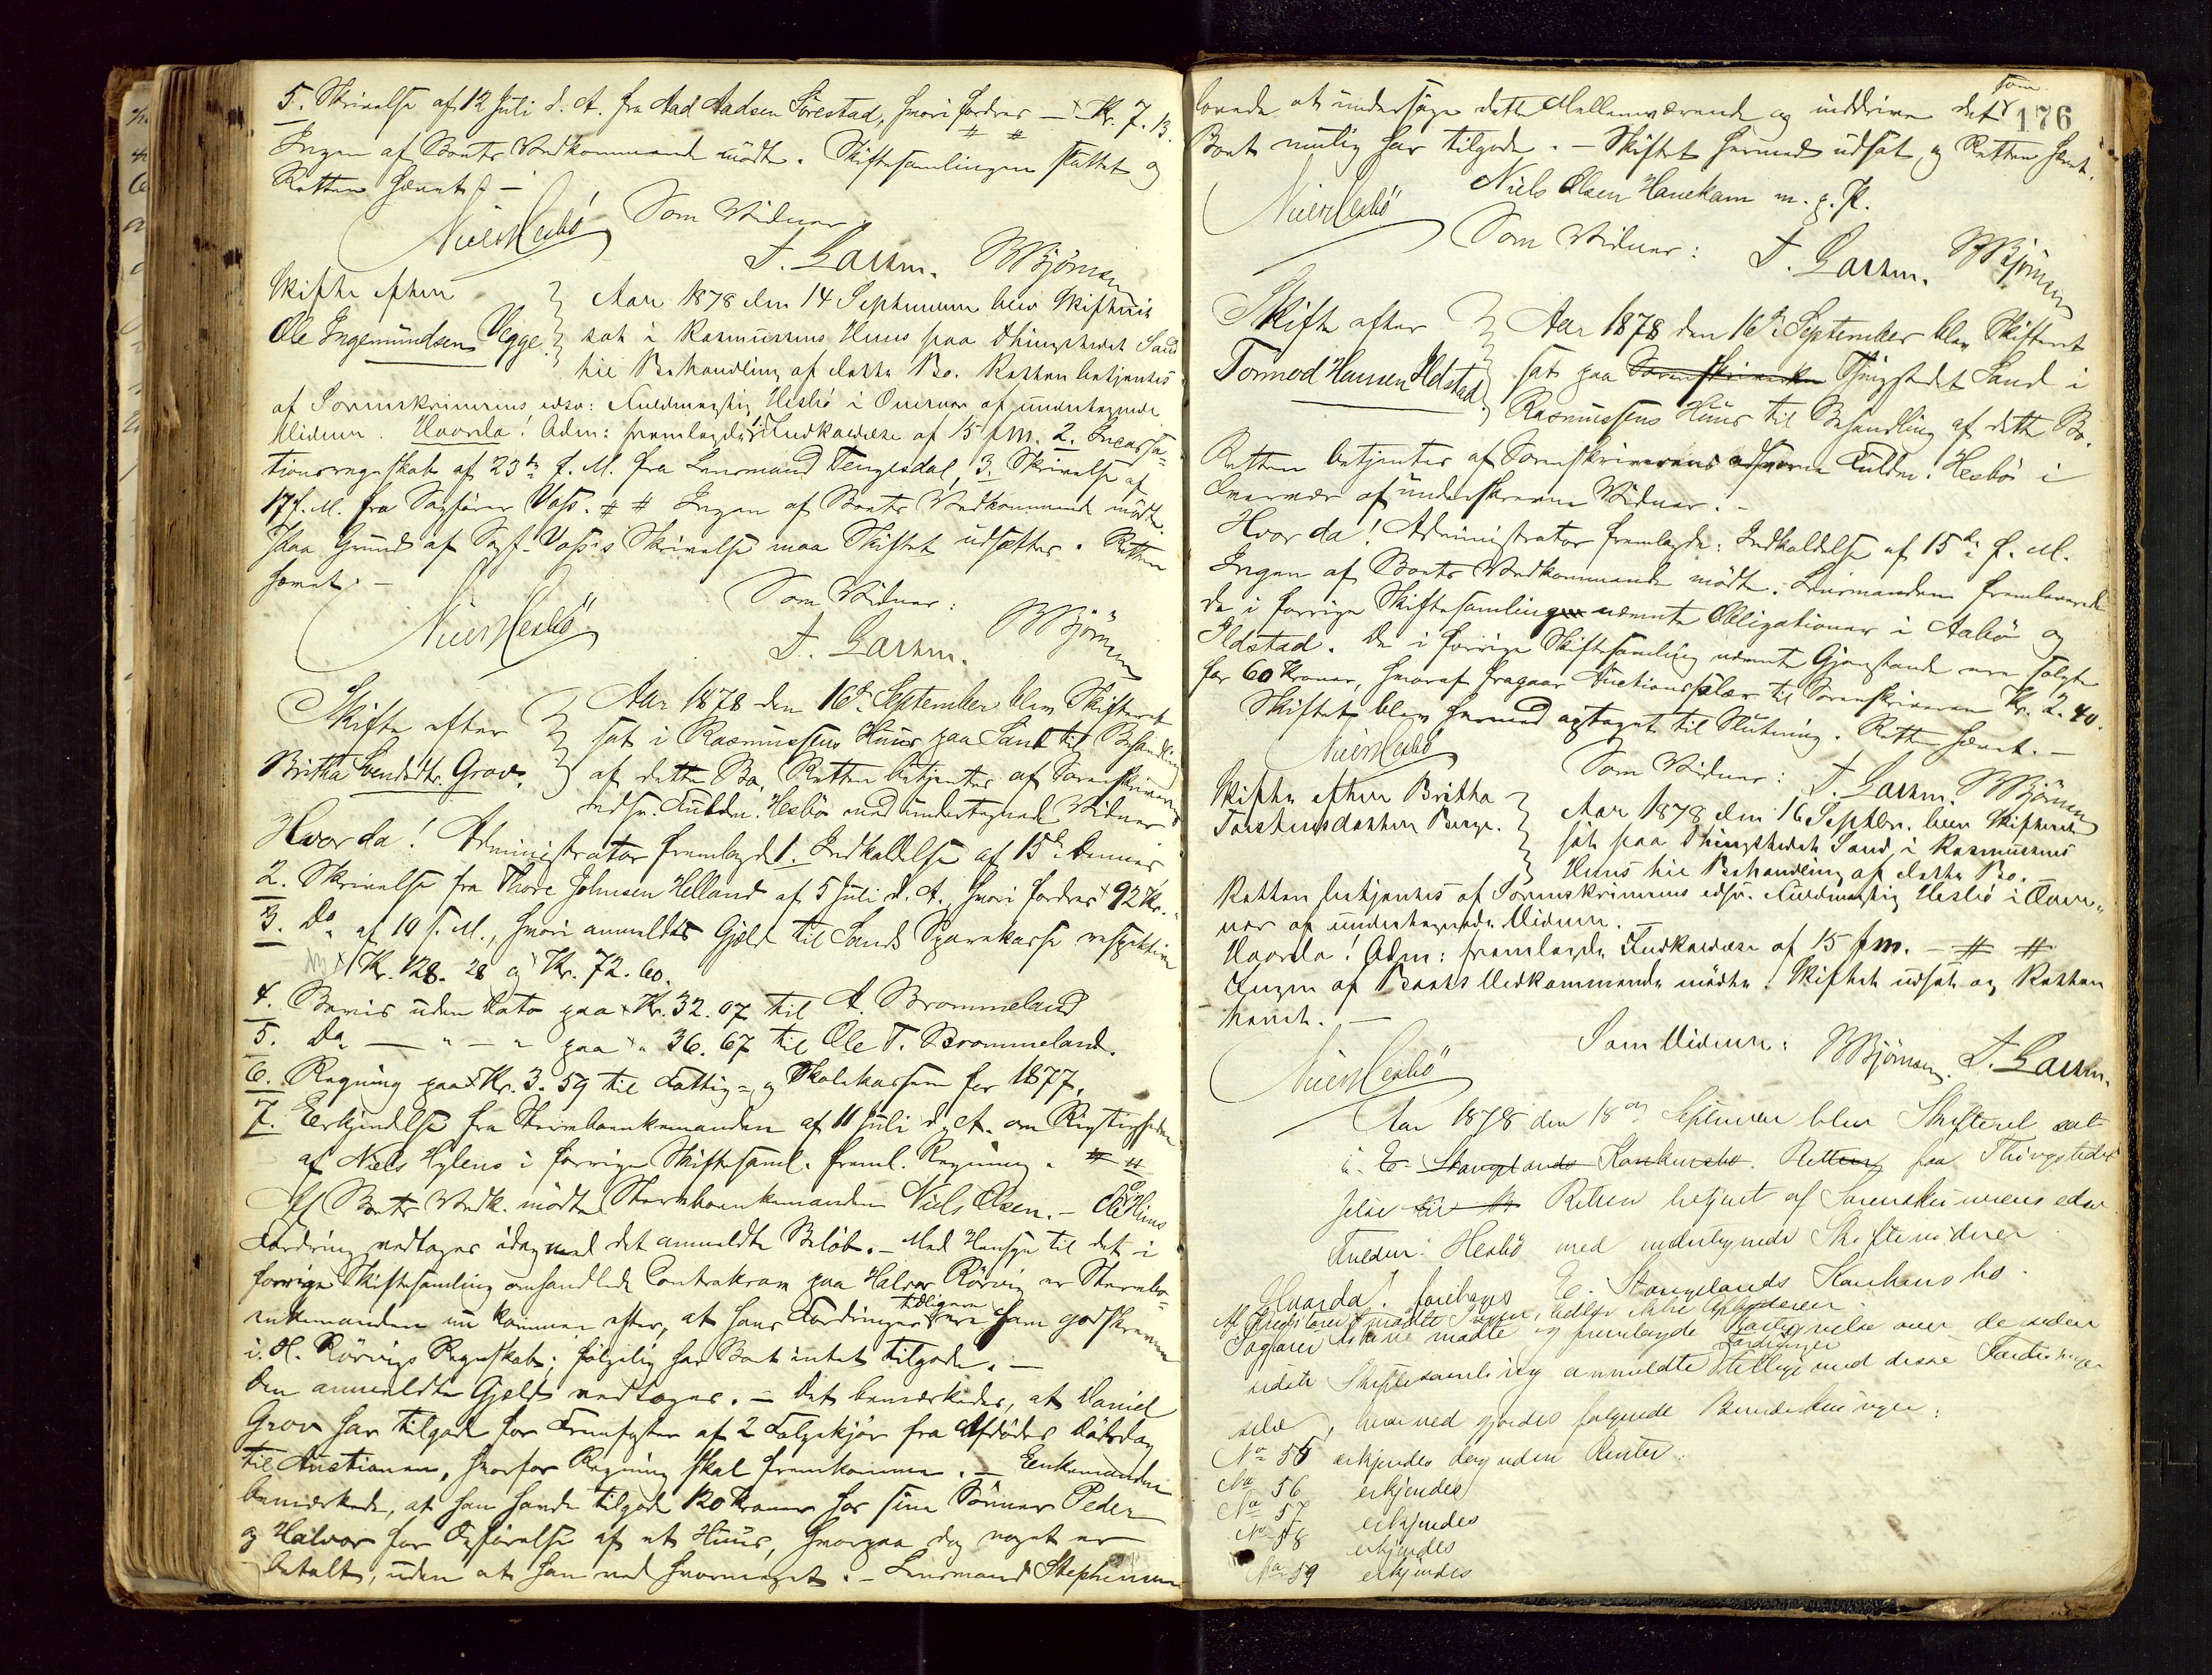 5. Skrivelse af 12 Juli d. A. fra Aad Aadsen Sørestad, hvori fordres – x Kr. 7.13.
Ingen af Boets Vedkommende mødte. Skiftesamlingen sluttet og
Retten hævet. –
Niels Hesbö Som Vidner
T. Larsen. BBjörnsen
Skifte efter
Ole Ingemundsen Vegge.
Aar 1878 den 14 September blev Skifteret
sat i Rasmussens Huus paa Thingstedet Sand
til Behandling af dette Bo. Retten betjentes
af Sorenskriverens edsv: Fuldmægtig Hesbö i Overvær af undertegnede
Vidner. Hvorda! Adm: fremlagde: 1. Indkaldelse af 15 f. M. 2. Incassa-
tionsregnskab af 23de f. M. fra Lensmand Tengesdal, 3. Skrivelse af
17 f. M. fra Sagfører Voss. # # Ingen af Boets Vedkommende mødte.
Paa Grund af Sagf. Voss's Skrivelse maa Skiftet udsættes. Retten
hævet. –
Niels Hesbö Som Vidner:
T. Larsen. BBjörnsen
Skifte efter
Britha Svendsdtr. Grov.
Aar 1878 den 16de September blev Skifteret
sat i Rasmussens Huus paa Sand til Behandling
af dette Bo. Retten betjentes af Sorenskriverens
edsv. Fuldm. Hesbö med undertegnede Vidner
Hvorda! Administrator fremlagde 1. Indkaldelse af 15de dennes,
2. Skrivelse fra Thore Johnsen Helland af 5 Juli d. A., hvori fordres x 92 Kr.
3. Do af 10 f. M., hvori anmeldes Gjæld til Sands Sparekasse respektive
x Kr. 128. 28 og x Kr. 72. 60.
4. Bevis uden Dato paa x Kr. 32. 07 til A. Brommeland
5. Do – " – " paa x " 36. 67 til Ole T. Brommeland.
6. Regning paa x Kr. 3. 59 til Fattig- og Skolekassen for 1877,
7. Erkjendelse fra Stervboenkemanden af 11 Juli d. A. om Rigtigheden
af Niels Hylens i forrige Skiftesaml. freml. Regning. # #
Af Boets Vedk. mødte Stervboenkemanden Niels Olsen. –
Fordring vedtoges idag med det anmeldte Beløb. – Med Hensyn til det i
forrige Skiftesamling omhandlede Contrakrav paa Halvor Rörvig er Stervbo-
enkemanden nu kommen efter, at hans Fordringer tidligere ere ham godskrevne
i H. Rörvigs Regnskab; følgelig har Boet intet tilgode. –
Den anmeldte Gjæld vedtoges. – Det bemærkedes, at Daniel
Grov har tilgode for Fremføster af 2 Følgekjør fra Afdødes Dødsdag
til Auctionen, hvorfor Regning skal fremkomme. – Enkemanden
bemærkede, at han havde tilgode 120 Kroner hos sine Sønner Peder
og Halvor for Opførelse af et Huus, hvorpaa dog noget er
betalt, uden at han ved hvormeget. – Lensmand Stephensen
176
lovede at undersøge dette Mellemværende og inddrive det som
Boet mulig har tilgode. – Skiftet hermed udsat og Retten hævet.
Niels Olsen Hanekam m. p. P.
Niels Hesbö Som Vidner: T. Larsen. BBjörnsen
Skifte efter
Tormod Hansen Ilstad.
Aar 1878 den 16de September blev Skifteret
sat paa Sorenskriverkon Thingstedet Sand i
Rasmussens Huus til Behandling af dette Bo.
Retten betjentes af Sorenskriverens edsvorne Fuldm. Hesbö i
Overvær af underskrevne Vidner. –
Hvorda! Administrator fremlagde: Indkaldelse af 15de f. M.
Ingen af Boets Vedkommende mødte. Lensmanden fremleverede
de i forrige Skiftesamling nævnte Obligationer i Aabö og
Ilstad. De i forrige Skiftesamling nævnte Gjenstande ere solgte
for 60 Kroner, hvoraf fragaar Auctionssalær til Sorenskriveren Kr. 2. 40.
Skiftet blev hermed optaget til Slutning. Retten hævet. –
Niels Hesbö Som Vidner: T. Larsen. BBjörnsen
Skifte efter Britha
Torstensdatter Berge.
Aar 1878 den 16 Septbr. blev Skifteret
sat paa Thingstedet Sand, i Rasmussens
Huus til Behandling af dette Bo.
Retten betjentes af Sorenskriverens edsv. Fuldmægtig Hesbö i Over-
vær af undertegnede Vidner. –
Hvorda! Adm: fremlagde Indkaldelse af 15 f. M. – # #
Ingen af Boets Vedkommende mødte! Skiftet udsat og Retten
hævet. –
Som Vidner: BBjörnsen. T. Larsen.
Niels Hesbö
Aar 1878 den 18de September blev Skifteret sat
i E. Stangelands Konkursbo. Retten paa Thingstedet
Jelse Retten betjent af Sorenskriverens edsv
Fuldm. Hesbö med undertegnede Skiftevidner
Hvorda! foretoges E. Stangelands Konkursbo.
Af Kreditorer mødte Ingen, heller ikke
Sagfører mødte og fremlagde Fortegnelse over de siden
sidste Skiftesamling anmeldte Fordringer tillige med disse Fordringer
selv, hvorved gjordes følgende Bemærkninger:
No 55 erkjendes dog uden Renter.
No 56 erkjendes
No 57 erkjendes
No 58 erkjendes
No 59 erkjendes